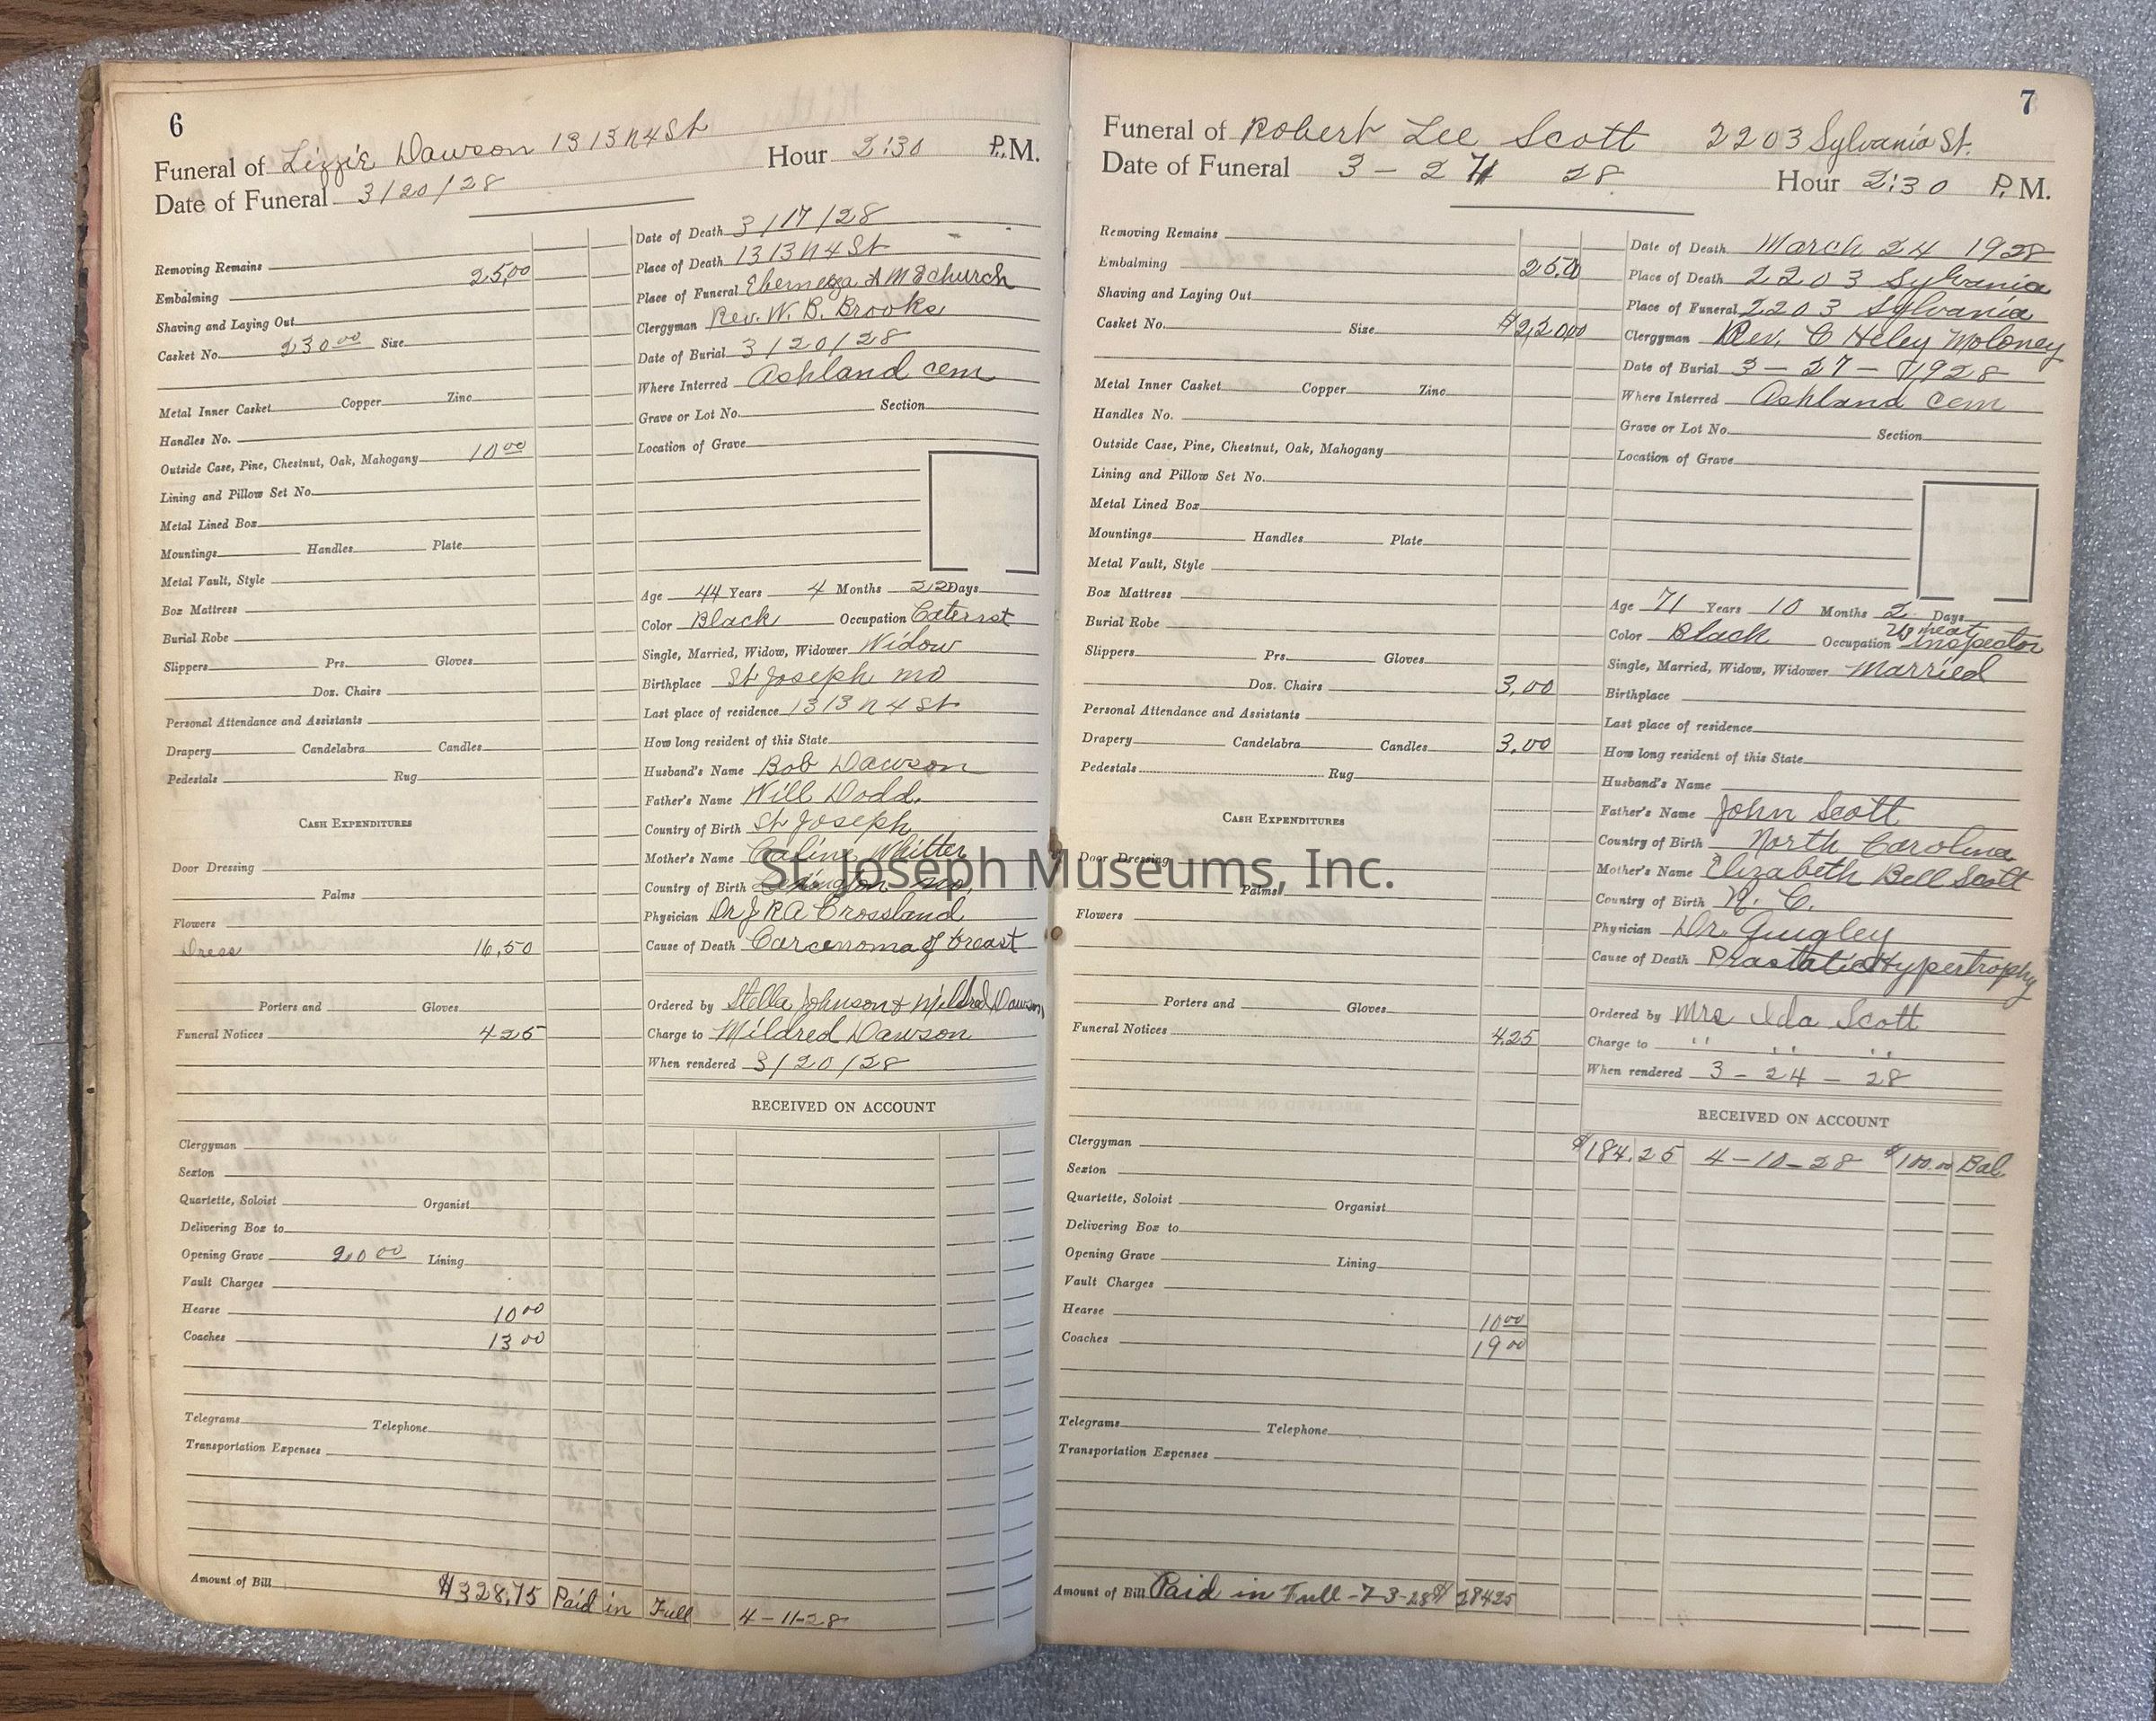 6
Funeral of Lizzie Dawson 1313 N 4 St
Date of Funeral 3/20/28 Hour 2:30 P.M.
Removing Remains
Embalming 25,00
Shaving and Laying Out
Casket No. 230 00 Size
Metal Inner Casket Copper Zinc
Handles No.
Outside Case, Pine, Chestnut, Oak, Mahogany 10 00
Lining and Pillow Set No.
Metal Lined Box
Mountings Handles Plate
Metal Vault, Style
Box Mattress
Burial Robe
Slippers Prs. Gloves
Doz. Chairs
Personal Attendance and Assistants
Drapery Candelabra Candles
Pedestals Rug
CASH EXPENDITURES
Door Dressing
Palms
Flowers
Dress 16,50
Porters and Gloves
Funeral Notices 4 25
Clergyman
Sexton
Quartette, Soloist Organist
Delivering Box to
Opening Grave 20 00 Lining
Vault Charges
Hearse 10 00
Coaches 13 00
Telegrams Telephone
Transportation Expenses
Amount of Bill $328,75 Paid in Full 4-11-28
Date of Death 3/17/28
Place of Death 1313 N 4 St
Place of Funeral A M E church
Clergyman Rev. W. B. Brooks
Date of Burial 3/20/28
Where Interred Ashland cem
Grave or Lot No. Section
Location of Grave
Age 44 Years 4 Months 22 Days
Color Black Occupation
Single, Married, Widow, Widower Widow
Birthplace St Joseph Mo
Last place of residence 1313 N 4 St
How long resident of this State
Husband's Name Bob Dawson
Father's Name Will Dodd.
Country of Birth St Joseph
Mother's Name Caline Whitter
Country of Birth Lexington Mo.
Physician Dr J R A Crossland
Cause of Death Carcenoma of breast
Ordered by Stella Johnson & Mildred Dawson
Charge to Mildred Dawson
When rendered 3/20/28
RECEIVED ON ACCOUNT
7
Funeral of Robert Lee Scott 2203 Sylvania St.
Date of Funeral 3 - 27 28 Hour 2:30 P.M.
Removing Remains
Embalming 25.00
Shaving and Laying Out
Casket No. Size $220,00
Metal Inner Casket Copper Zinc
Handles No.
Outside Case, Pine, Chestnut, Oak, Mahogany
Lining and Pillow Set No.
Metal Lined Box
Mountings Handles Plate
Metal Vault, Style
Box Mattress
Burial Robe
Slippers Prs. Gloves
Doz. Chairs 3,00
Personal Attendance and Assistants
Drapery Candelabra Candles 3,00
Pedestals Rug
CASH EXPENDITURES
Door Dressing
Palms
Flowers
Porters and Gloves
Funeral Notices 4.25
Clergyman
Sexton
Quartette, Soloist Organist
Delivering Box to
Opening Grave Lining
Vault Charges
Hearse 10 00
Coaches 19 00
Telegrams Telephone
Transportation Expenses
Amount of Bill Paid in Full - 7-3-28 $ 284 25
Date of Death March 24 1928
Place of Death 2203 Sylvania
Place of Funeral 2203 Sylvania
Clergyman Rev. C Heley Moloney
Date of Burial 3 - 27 - 1928
Where Interred Ashland cem
Grave or Lot No. Section
Location of Grave
Age 71 Years 10 Months 2 Days
Color Black Occupation meat inspector
Single, Married, Widow, Widower Married
Birthplace
Last place of residence
How long resident of this State
Husband's Name
Father's Name John Scott
Country of Birth North Carolina
Mother's Name Elizabeth Bell Scott
Country of Birth N. C.
Physician Dr. Quigley
Cause of Death Prastatic Hypertrophy
Ordered by Mrs Ida Scott
Charge to " " "
When rendered 3 - 24 - 28
RECEIVED ON ACCOUNT
$184.25 4-10-28 $100.00 Bal
St. Joseph Museums, Inc.